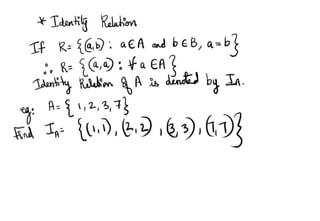 * Identity Relation
If R = {(a,b) : a ∈ A and b ∈ B, a = b}
∴ R = {(a,a) : ∀ a ∈ A}
Identity Relation of A is denoted by I_A.
eg: A = {1, 2, 3, 7}
Find I_A = {(1,1), (2,2), (3,3), (7,7)}